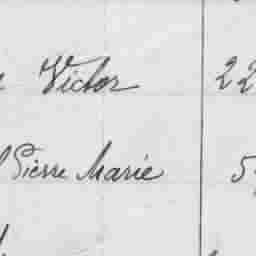 Victor 22
Pierre Marie 5